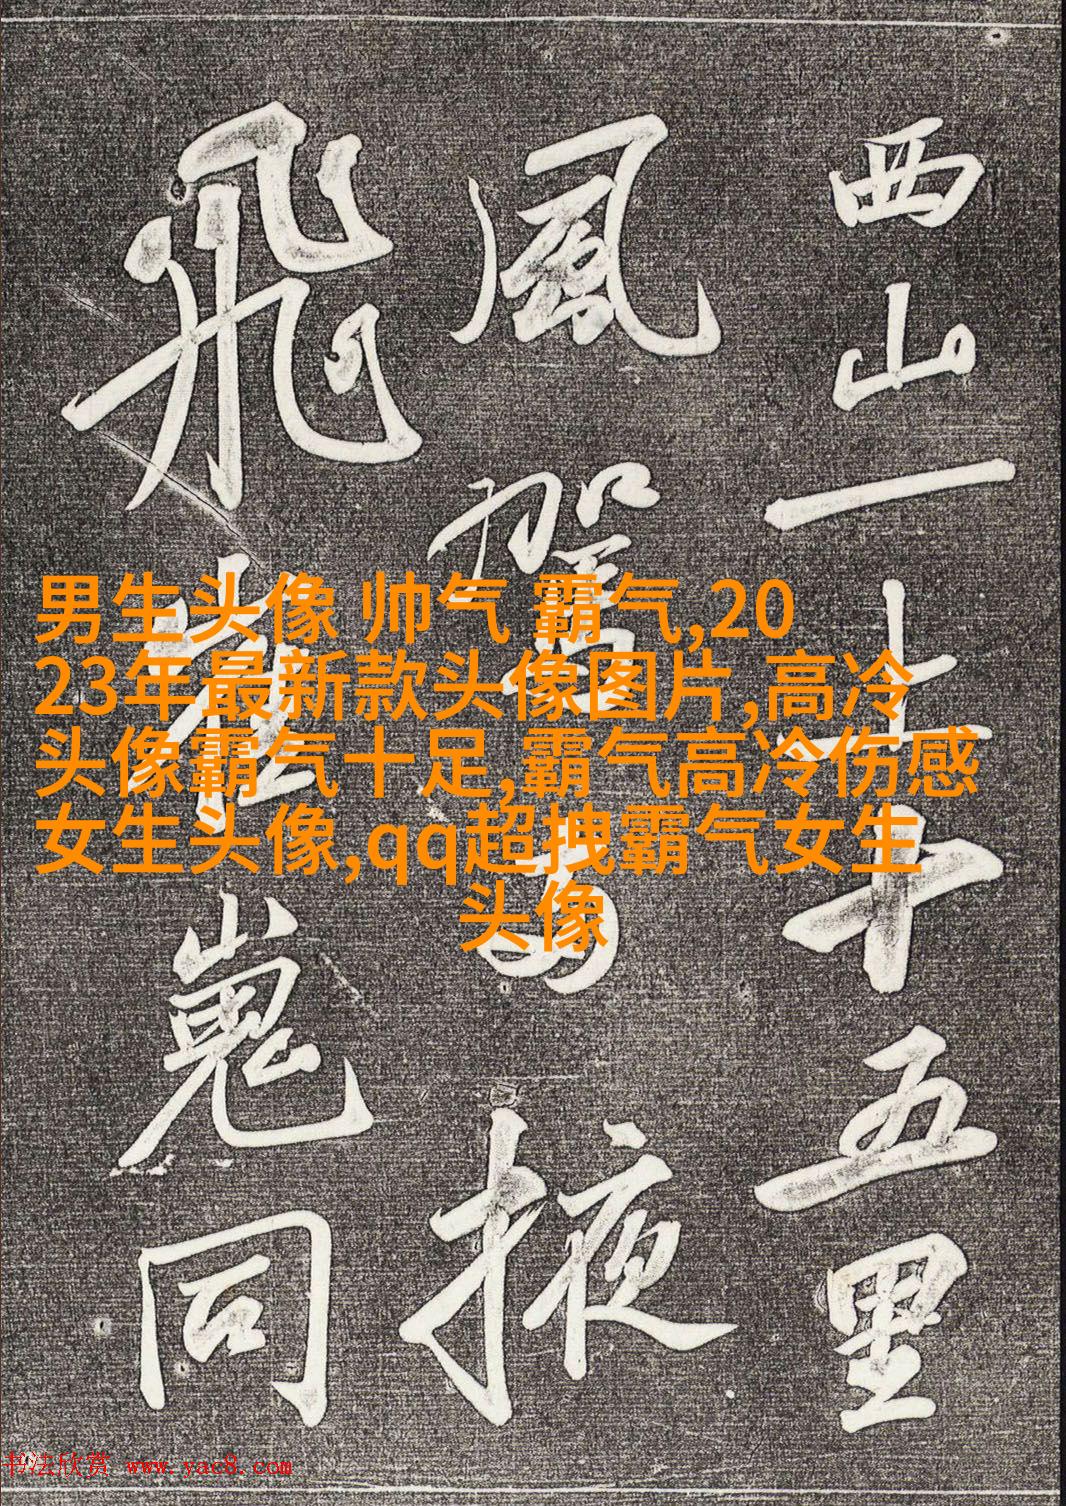 西山一上十五里
風駕掖
飛崔嵬同
男生头像 帅气 霸气,20
23年最新款头像图片,高冷
头像霸气十足,霸气高冷伤感
女生头像,qq超拽霸气女生
头像
书法欣赏 www.yac8.com